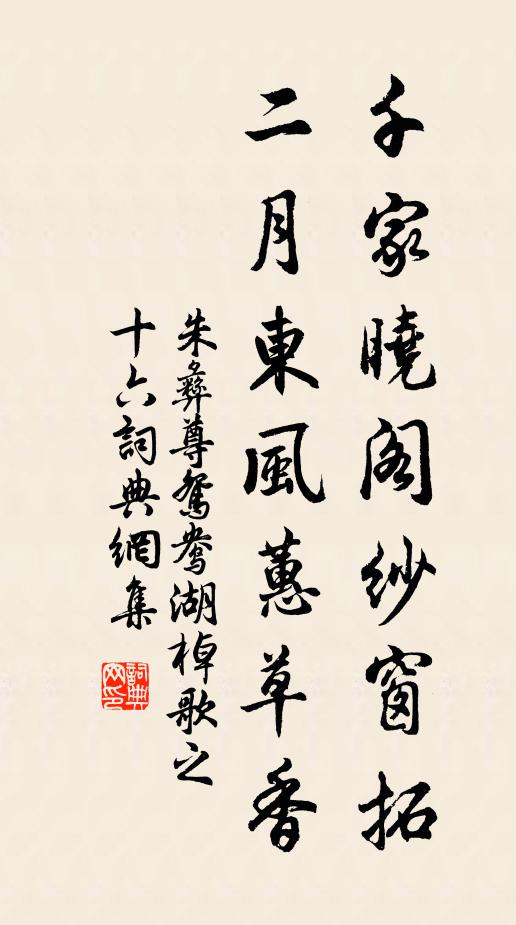 千家曉閣紗窗拓
二月東風蕙草香
朱彝尊鴛鴦湖棹歌之
十六詞典網集
詞典網印